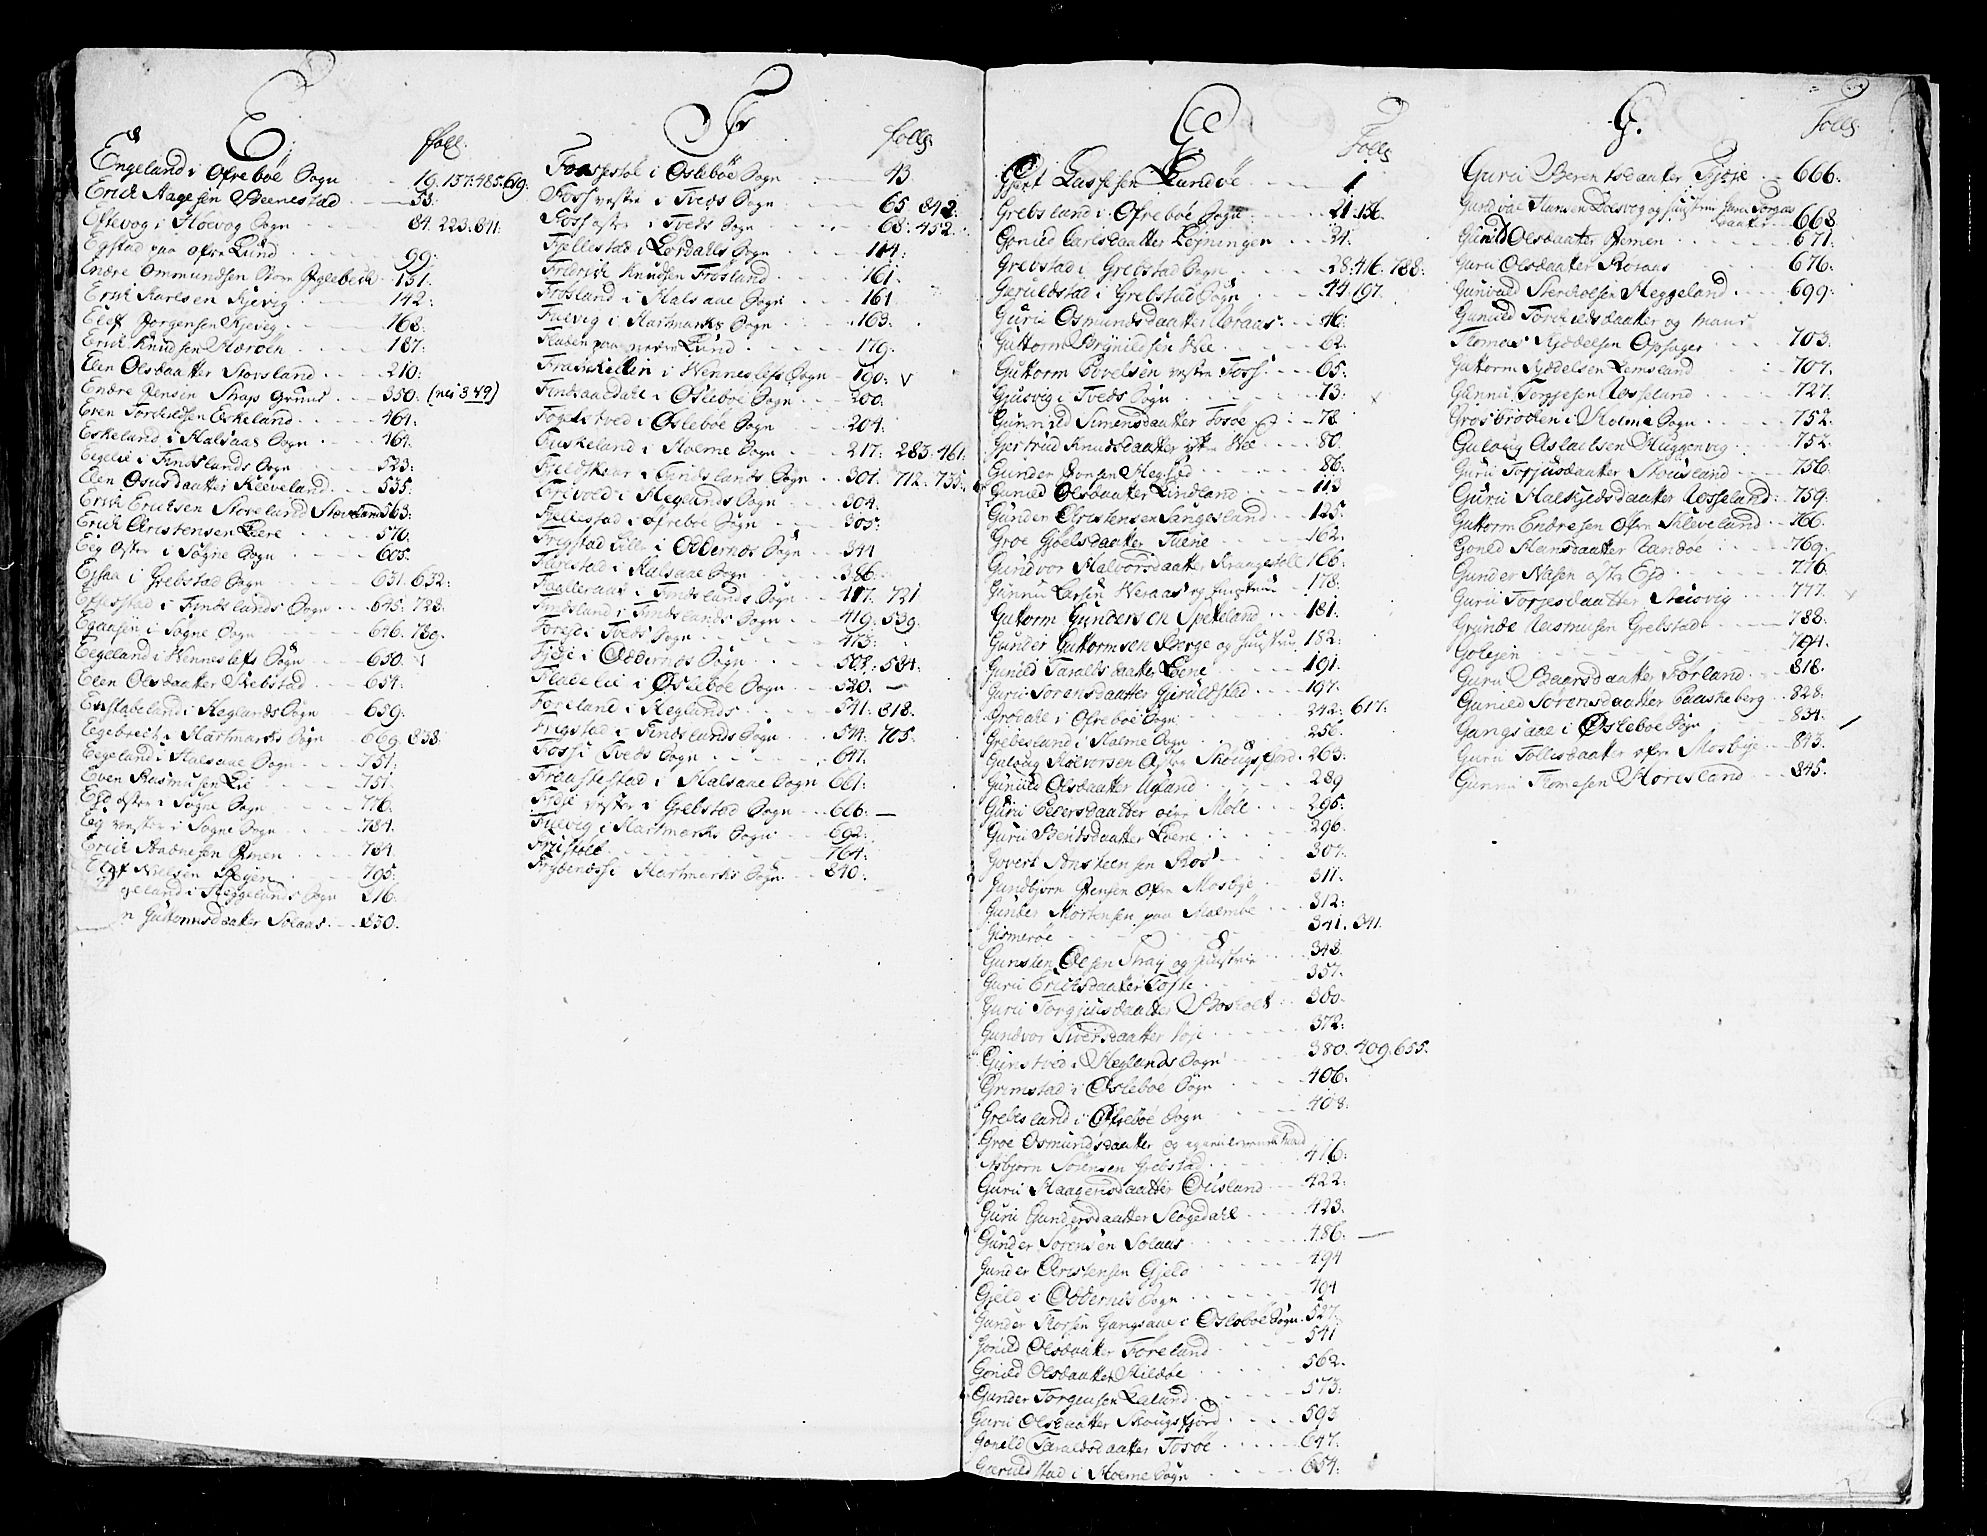 E. foll:
Engeland i Øfrebøe Sogn 19. 157. 485. 619.
Erich Aagesen Beenestad 53.
Eftevog i Høevog Sogn 84. 223. 841.
Egstad paa øfre Lund 99.
Endre Ommundsen Store 131.
Erich Karlsen Kjevig 142.
Elef Jørgensen Kjevig 168.
Erich Knudsen Hærøen 187.
Elen Olsdaatter Stovsland 210.
Endre Jensen Skaps Grund 350. (nei 349)
Even Torkieldsen Eskeland 464.
Eskeland i Halsaae Sogn 464.
Eegelie i Findslands Sogn 523.
Elen Osusdaatter Kleveland 535.
Erich Ericksen Stoveland 563.
Erich Christensen Leere 570.
Eeg østre i Søgne Sogn 605.
Eysaa i Grebstad Sogn 631. 632.
i Findslands Sogn 645. 728.
i Søgne Sogn 676. 739.
Eegeland i Wenneslefs Sogn 650.
Elen Olsdaatter Stebstad 654.
Enstabeland i Heglands Sogn 659.
Egebrect i Hartmarks Sogn 669. 838.
Eegeland i Halsaae Sogn 731.
Even Rasmusen Lie 751.
Egd østre i Søgne Sogn 776.
Eig vester i Søgne Sogn 784.
Erich AadnesenØmen 784.
Elef Nielsen 795.
geland i Heggelands Sogn 216.
n Guttormsdaatter Solaas 830.
F foll:
Faasestøl i Øslebøe Sogn 43.
Foss vestre i Tveds Sogn 65. 842.
Foss østre i Tveds Sogn 65. 452.
Fjellestad i Lerdahls Sogn 114.
Friderich Knudsen Frøsland 161.
Frøsland i Halsaae Sogn 161.
Fuevig i Hartmarks Sogn 163.
Fladen paa nedre Lund 179.
Frawikellen i Wenneslefs Sogn 190. v
Findsaadahl i Øslebøe Sogn 200.
Fogetved i Øslebøe Sogn 204.
Fuskeland i Holme Sogn 217. 283. 461.
Fjeldskaar i Findslands Sogn 301. 712. 735.
i Heglands Sogn 304.
Fjellestad i Øfrebøe Sogn 305.
Fregstad Lille i Oddernæs Sogn 344
Farestad i Halsaae Sogn 386.
Faalleraas i Findslands Sogn 417. 721
Findsland i Findslands Sogn 419. 539.
i Tveds Sogn 473.
Fidje i Oddernæs Sogn 508. 584.
Flaee Lie i Øslebøe Sogn 520.
Foreland i Heglands 541. 818.
Fregstad i Findslands Sogn 544. 705.
Foss i Tveds Sogn 647.
Frøustestad i Halsaae Sogn 661.
Fidje vester i Grebstad Sogn 666.
Fuevig i Hartmarks Sogn 692.
Fruistøll 764.
i Hartmarks Sogn 840.
G Foll:
Gjert Lassesen Randøe 1
Grebsland i Øfrebøe Sogn 21. 156.
Gonild Carlsdaatter Lejningen 24.
Grebstad i Grebstad Sogn 28. 416. 788.
Garuldstad i Grebstad Sogn 44. 197.
Guru Osmundsdaatter Roraas 46.
Guttorm Brynildsen Wee 62.
Guttorm Povelsen vestre Foss 65.
Gjusvig i Tveds Sogn 73.
Gunnild Simensdaatter Fosøe 78.
Gjertrud Knudsdaatter Wee 80.
Gunder Joensen 86.
Gunild Olsdaatter Lindland 113
Gunder Christensen Langesland 125.
Groe Gjoelsdaatter Tueite 162.
Gundvor Halvorsdaatter Krangestøll 166.
Gunnu Larsen Weraas og hustrue 178.
Guttorm Gundersen Spekeland 181.
Gunder Guttormsen Berge og Hustru 182.
Gunild Taraldsdaatter Leene 191.
Guru Sørensdaatter Gjeruldstad 197.
Grødahl i Øfrebøe Sogn 242. 617.
Grebesland i Holme Sogn 256.
Gulaug Roevorsen østre Skougsfjord 263.
Gunild Olsdaatter Ugland 289
Guru Pedersdaatter øfre Moll 295.
Guru Bentsdaatter Leere 296.
Govert Ansteensen Ros 307.
Gundbjørn Jensen øfre Mosbye 311.
Gunder Mortensen paa Malmøe 312.
Gismerøe 341. 341.
Gunsten Olsen Strai og Hustrue 348
Guru Erichsdaatter Tofte 357.
Guru Torgjusdaatter Bosholt 360.
Gundvor Siversdaatter 372.
Gunstved i Heglands Sogn 380. 409. 655.
Grimstad i Øslebøe Sogn 406.
Grebesland i Øfrebøe Sogn 408.
Groe Osmundsdaatter og
Asbjørn Sørensen Grebstad 416.
Guru Haagensdaatter Ousland 422.
Guru Gundersdaatter Sløgedahl 423.
Gunder Sørensen Solaas 486.
Gunder Christensen Gjeld 494
Gjeld i Oddernes Sogn 494
Gunder Gangsaae i Øslebøe Sogn 527.
Gonild Olsdaatter Foreland 541
Gonild Olsdaatter Hildøe 562.
Gunder Jørgensen Lalund 573.
Guru Olsdaatter Skougsfjord 593.
Gonild Taraldsdaatter Fosøe 647.
Garuldstad i Holme Sogn 654.
G. Folls:
Guru Berentsdaatter Fidje 666.
668
Gunild Olsdaatter Ømen 671.
Guru Olsdaatter Roraas 676.
Gunvald Sterckolsen Heggeland 699.
Gunild Torkieldsdaatter og Mand
Thomas Sydelsen Opsager 703.
Guttorm Sydelsen Lemsland 707.
Gunnu Torgjesen Rosseland 727.
Grosbroden i Holme Sogn 752.
Gulaug Aslacksen Huggenvig 752.
Guru Torjusdaatter Stousland 756.
Guru Halkjelsdaatter Rosseland 759.
Guttorm Endresen øfre Kleveland 766.
Gonild Hansdaatter Randøe 769.
Gunder Nasen østre Egd 776.
Guru Torgiesdaatter Steiovig 777.
Gunde Rasmusen Grebstad 788.
Golejen 794.
Guru Baarsdaatter Førland 818.
Gunild Sørensdaatter Paaskeberg 828.
Gangsaae i Øslebøe Sogn 834.
Guru Tollefsdaatter øfre Mosbye 843.
Gunnu Thomesen Horesland 845.